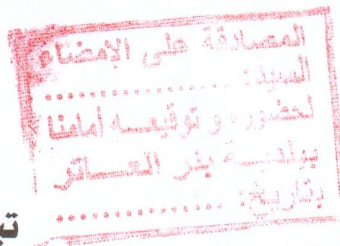 المصادقة على الإمضاء
السيد: ................
لحضوره و توقيعه أمامنا
ببلدية بئر العاتر
بتاريخ: ................